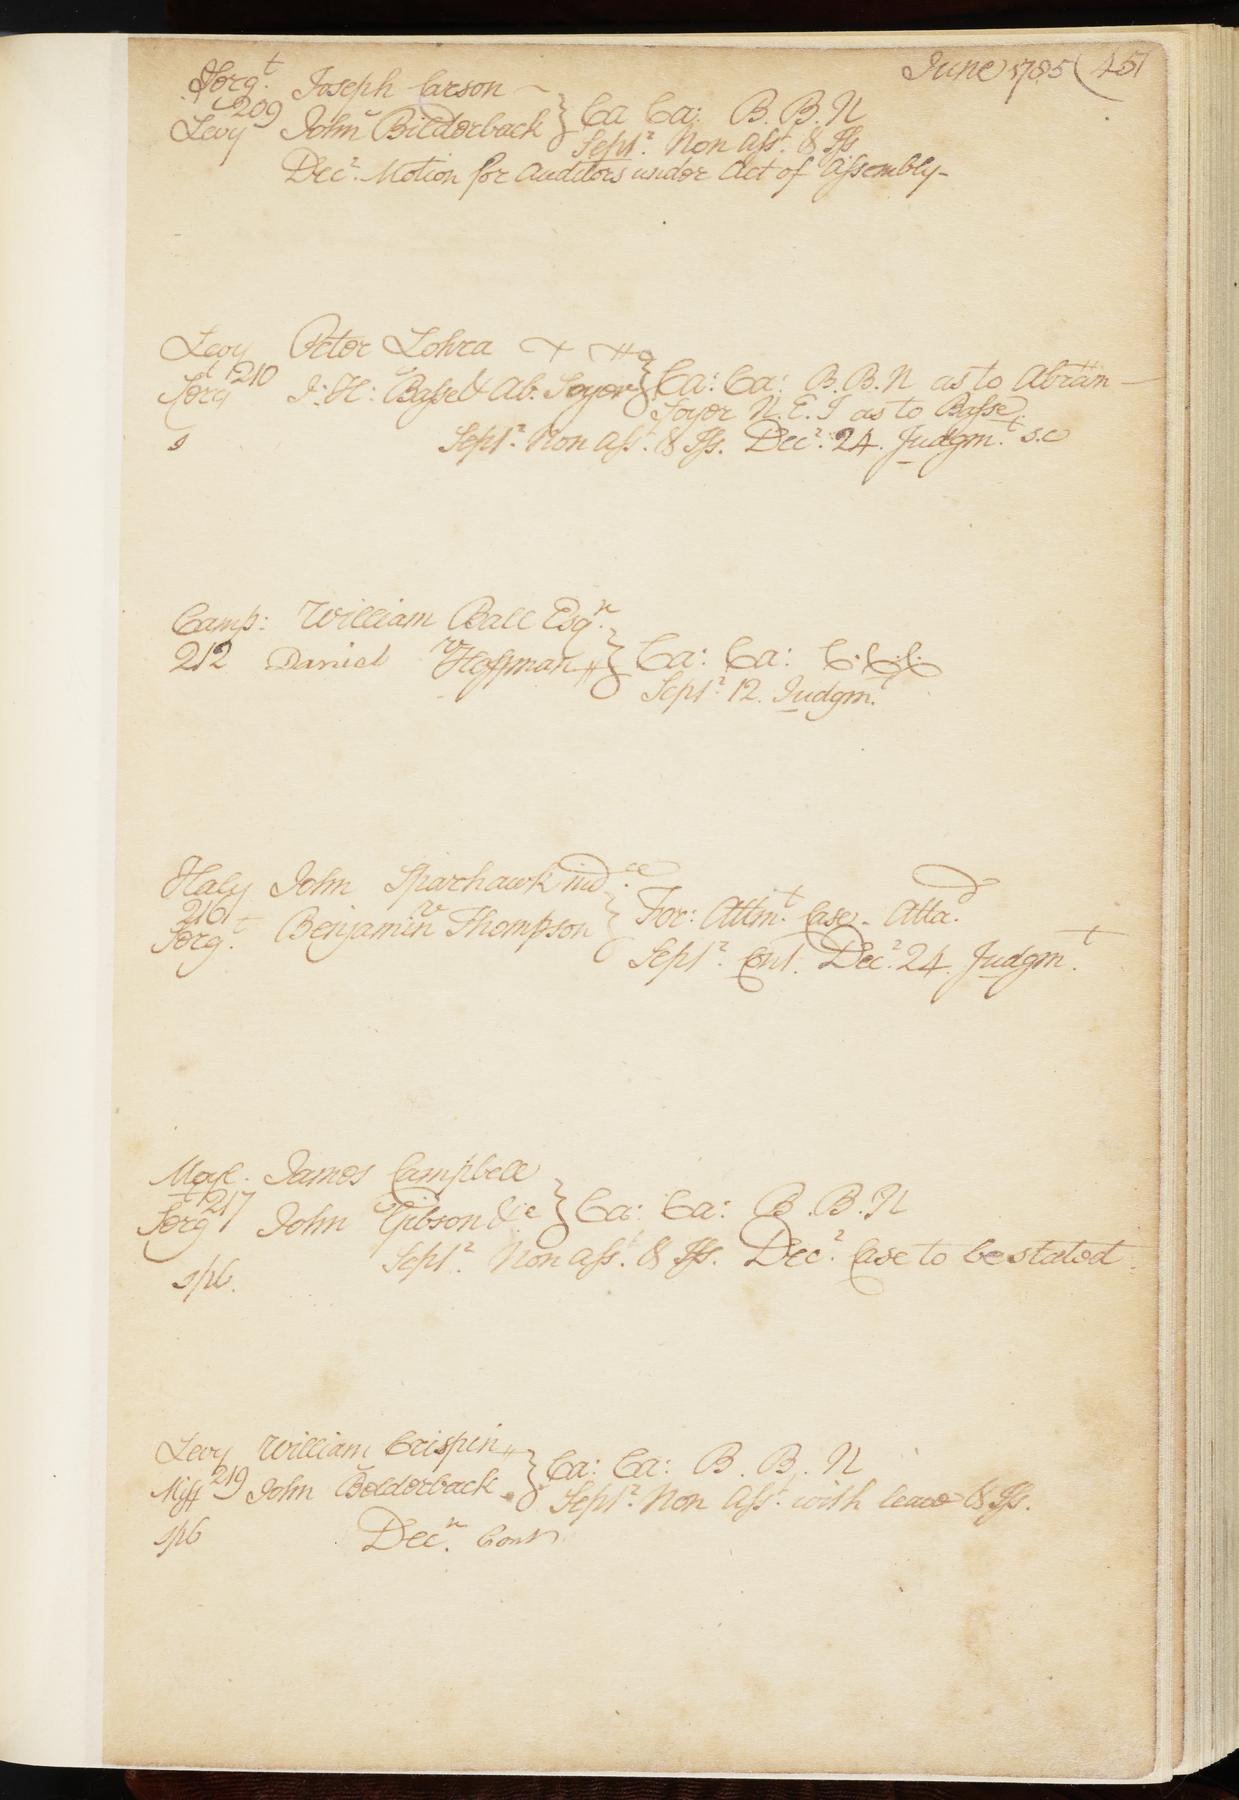 June 1785 (457
Serg.t Joseph Carson
209
Levy John Bilderback } Ca Ca: B. B. N
Sept.r Non Ass.t & Iss
Dec.r Motion for Auditors under Act of Assembly-
Levy Peter Lohra
Serg.t 210 J: H: Basse & Ab. Soyer } Ca: Ca: B. B. N as to Abram
Soyer N. E. I as to Basse
s Sept.r Non Ass.t & Iss. Dec.r 24. Judgm.t s.c
Camp: William Ball Esq.r
v
212 Daniel Hoffman } Ca: Ca: C.C.C.
Sept.r 12. Judgm.t
Haly John Sparhawk ind.ee
216 v } For: Attm.t Case - Atta.d
Serg.t Benjamin Thompson
Sept.r Cont. Dec.r 24. Judgm.t
Moyl. James Campbell
Serg.t 217 John Gibson &c } Ca: Ca: B. B. N
Sept.r Non Ass.t & Iss. Dec.r Case to be stated
spb.
Levy William Crispin
Miff 219 John Belderback } Ca: Ca: B. B. N
Sept.r Non Ass.t with leave & Iss.
spb Dec.r Cont